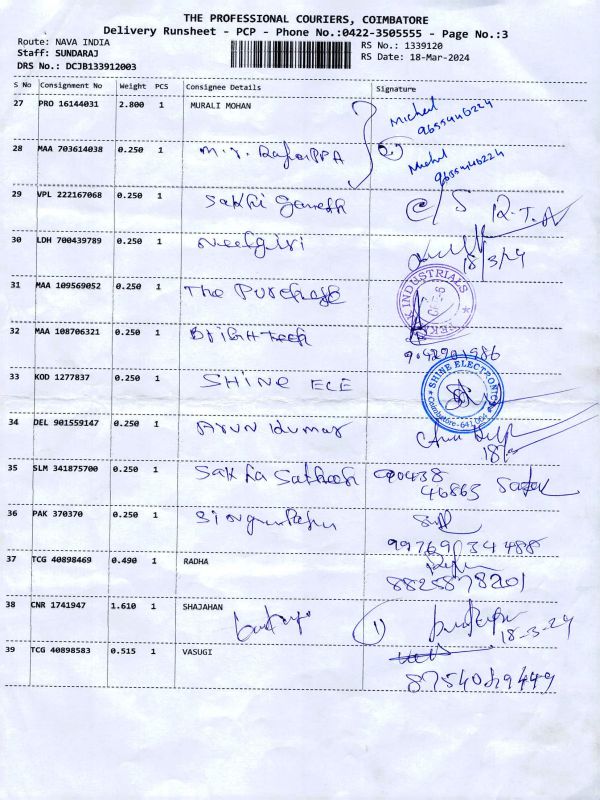 THE PROFESSIONAL COURIERS, COIMBATORE
Delivery Runsheet - PCP - Phone No.:0422-3505555 - Page No.:3
Route: NAVA INDIA
Staff: SUNDARAJ
DRS No.: DCJB133912003
RS No.: 1339120
RS Date: 18-Mar-2024
S No Consignment No Weight PCS Consignee Details Signature
27 PRO 16144031 2.800 1 MURALI MOHAN
9655446224
28 MAA 703614038 0.250 1
9655446224
29 VPL 222167068 0.250 1 Sakthi Ganesh C/S R.T.A
30 LDH 700439789 0.250 1 Neelgiri
18/3/24
31 MAA 109569052 0.250 1 The Purchase
INDUSTRIALS
32 MAA 108706321 0.250 1 Bright Tech
9042201986
33 KOD 1277837 0.250 1 SHINE ECE
SHINE ELECTRONICS
Coimbatore-641 004
34 DEL 901559147 0.250 1 Arun Kumar
18/3
35 SLM 341875700 0.250 1 Sakthi Satheesh 990438
46863
36 PAK 370370 0.250 1
9976903 4488
37 TCG 40898469 0.490 1 RADHA
8825878201
38 CNR 1741947 1.610 1 SHAJAHAN
1) 18-3-24
39 TCG 40898583 0.515 1 VASUGI
8754029449